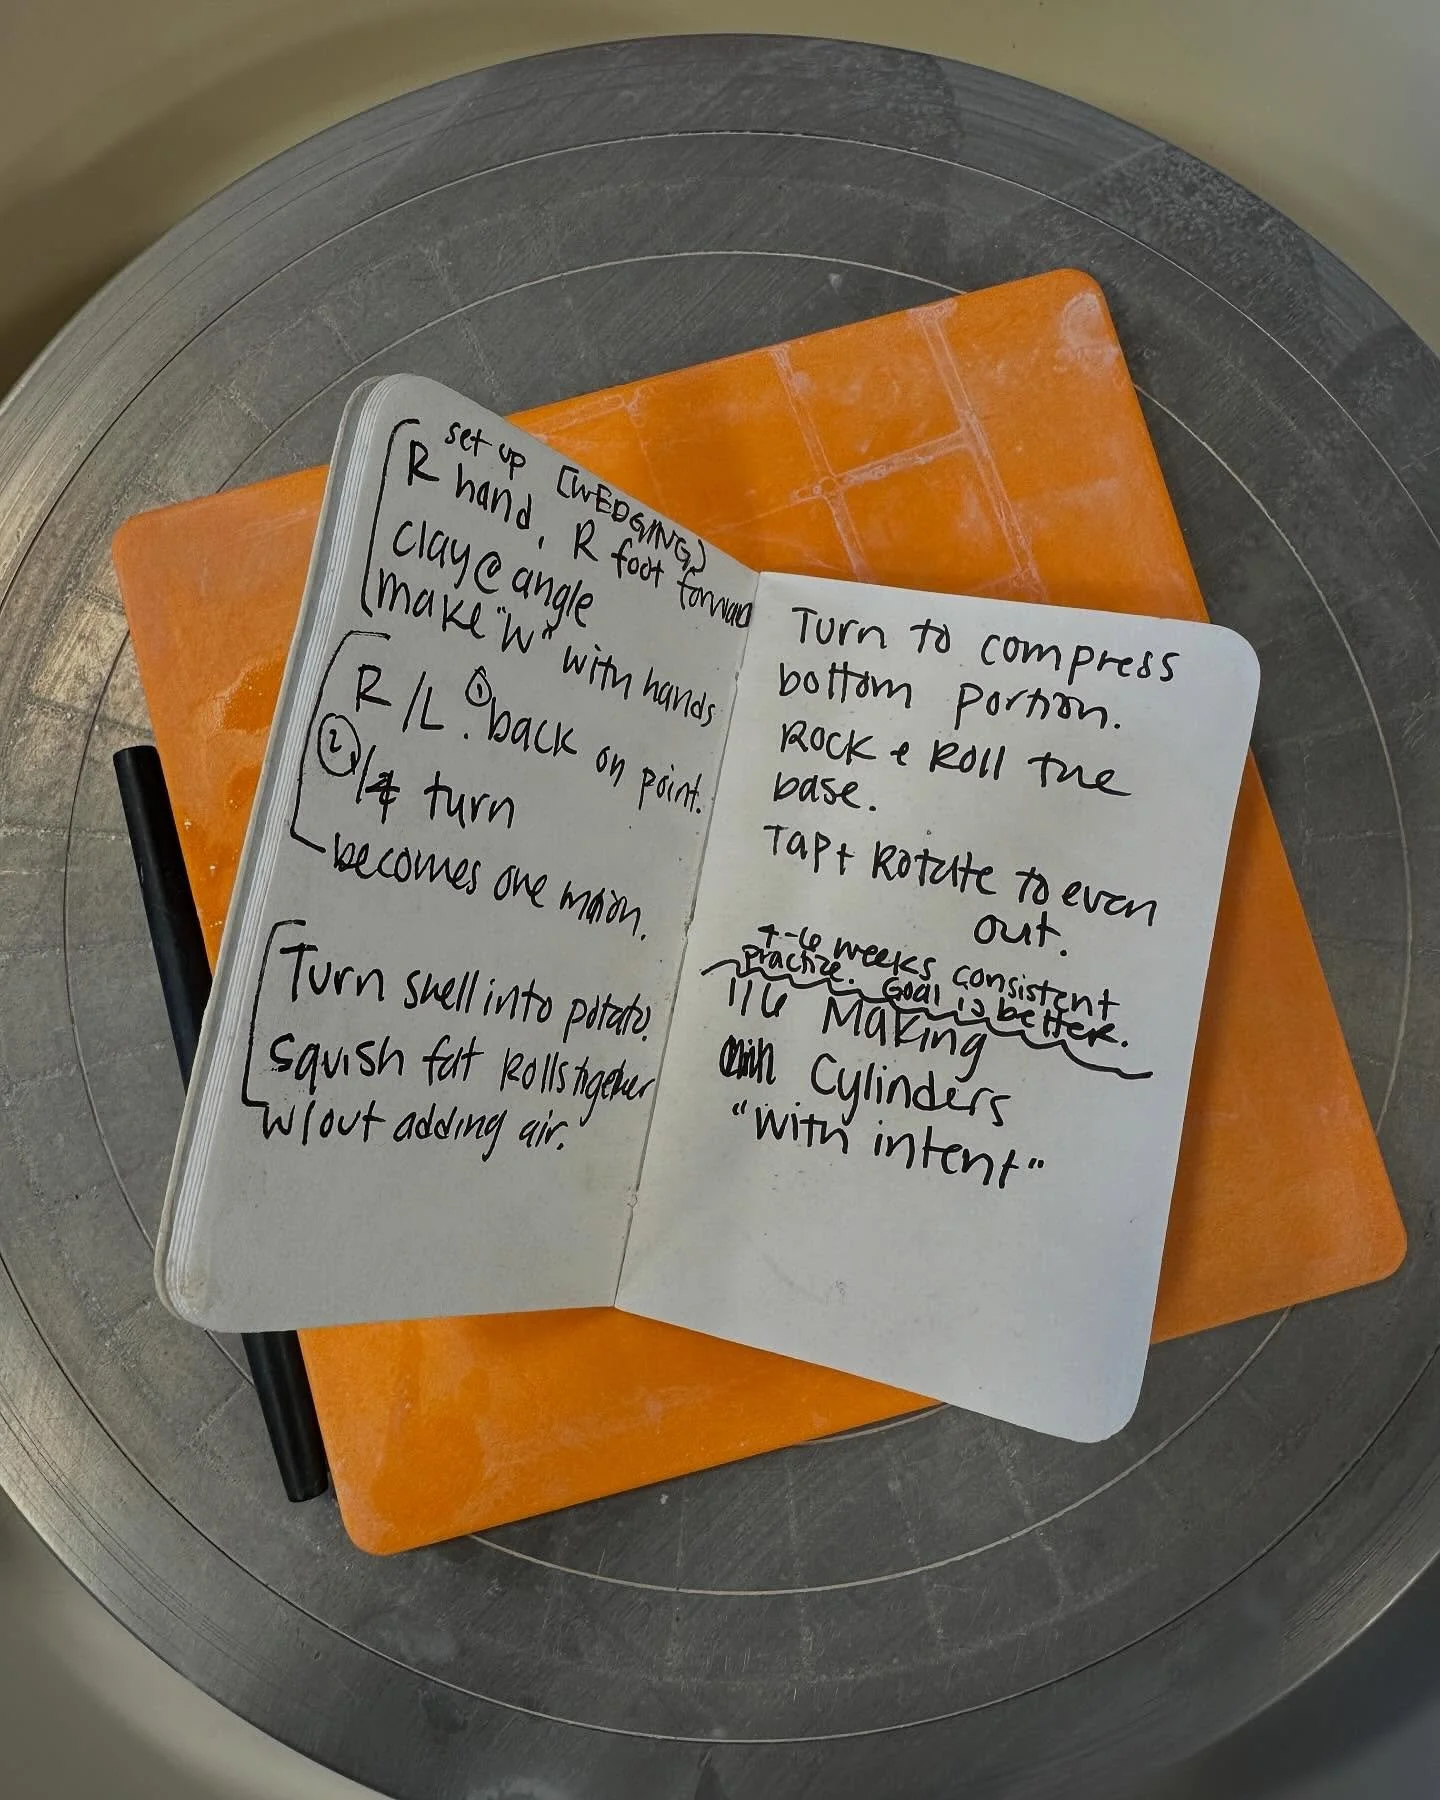 set up [WEDGING)
R hand, R foot forward
clay @ angle
make "W" with hands
R/L. ① back on point.
② 1/4 turn
becomes one motion.
Turn shell into potato.
Squish fat rolls together
w/out adding air.
Turn to compress
bottom portion.
Rock + Roll the
base.
Tap + Rotate to even
out.
4-6 weeks consistent
practice. Goal is better.
1/6 Making
Cylinders
"with intent"